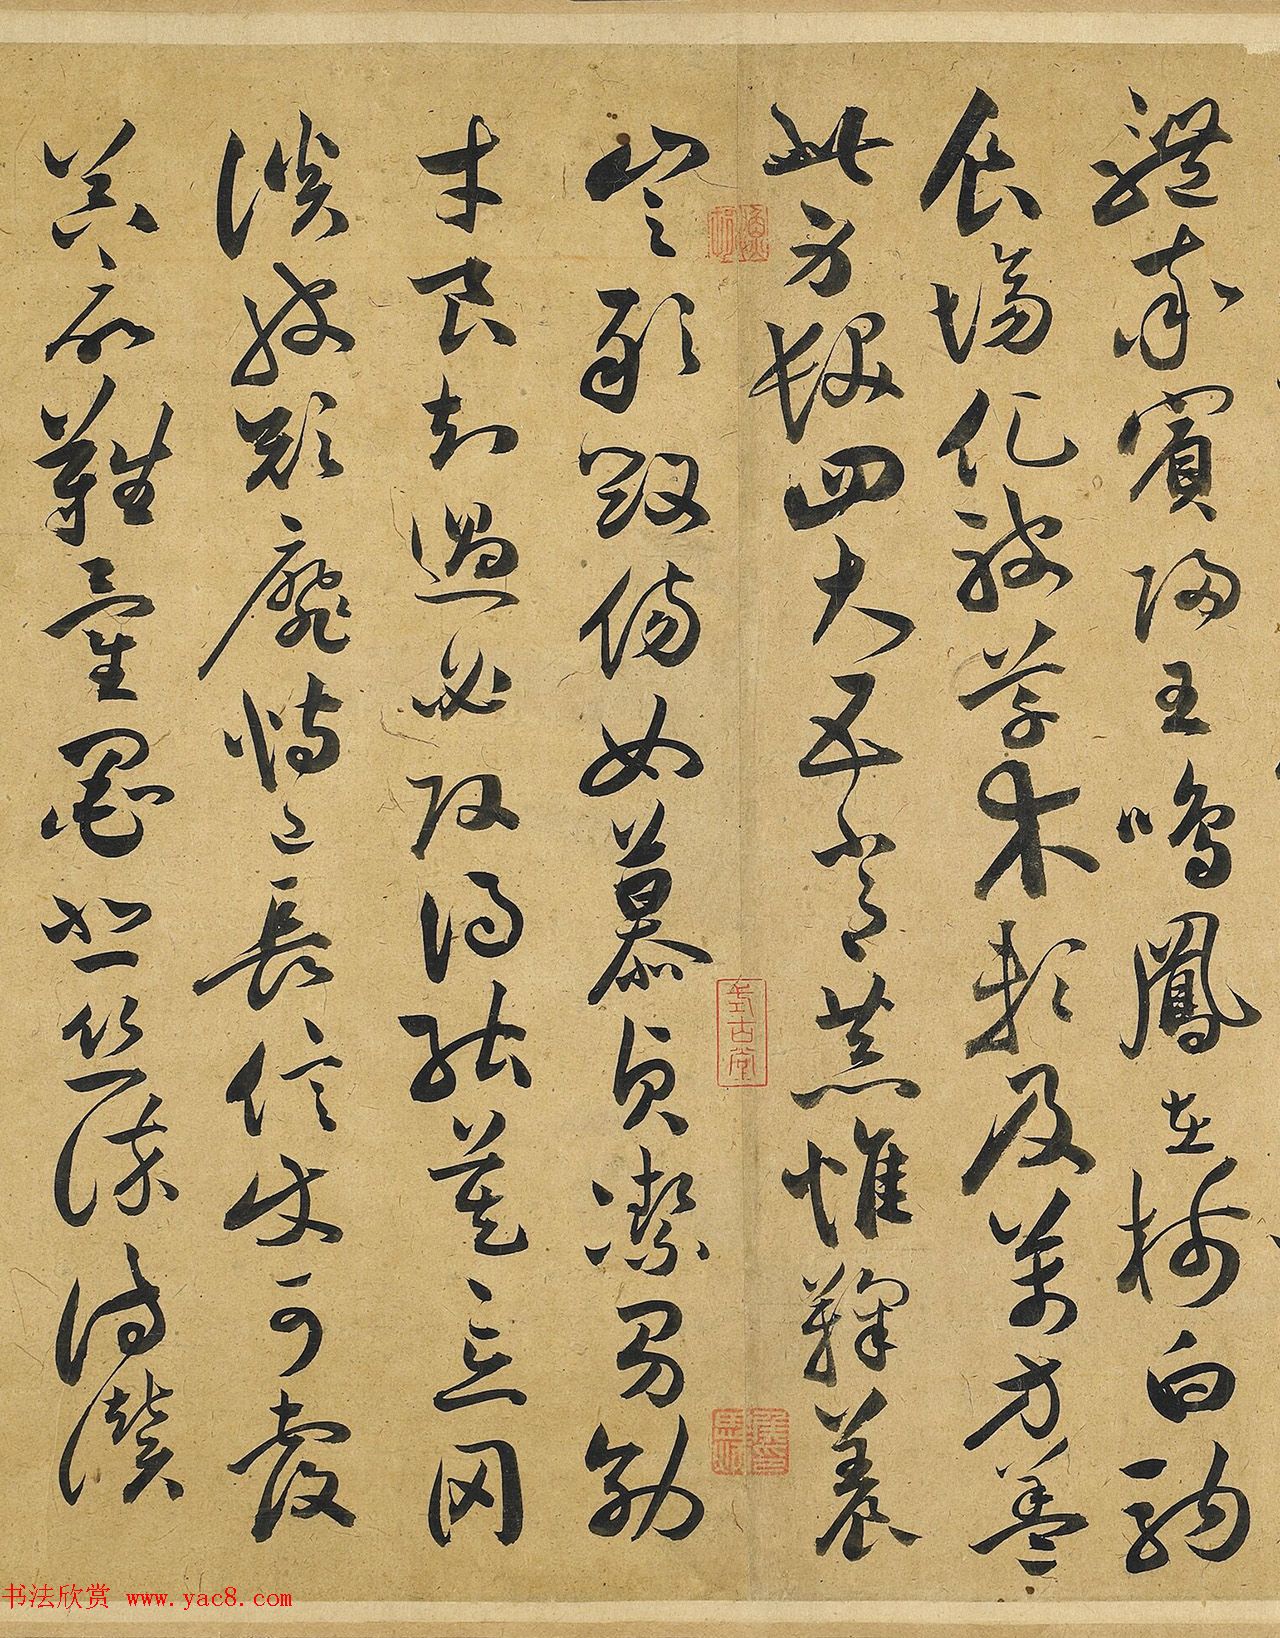 體率賓歸王鳴鳳在樹白駒
食場化被草木賴及萬方蓋
此身髮四大五常恭惟鞠養
豈敢毀傷女慕貞潔男効
才良知過必改得能莫忘罔
談彼短靡恃己長信使可覆
器欲難量墨悲絲染詩讚
式古堂
书法欣赏 www.yac8.com